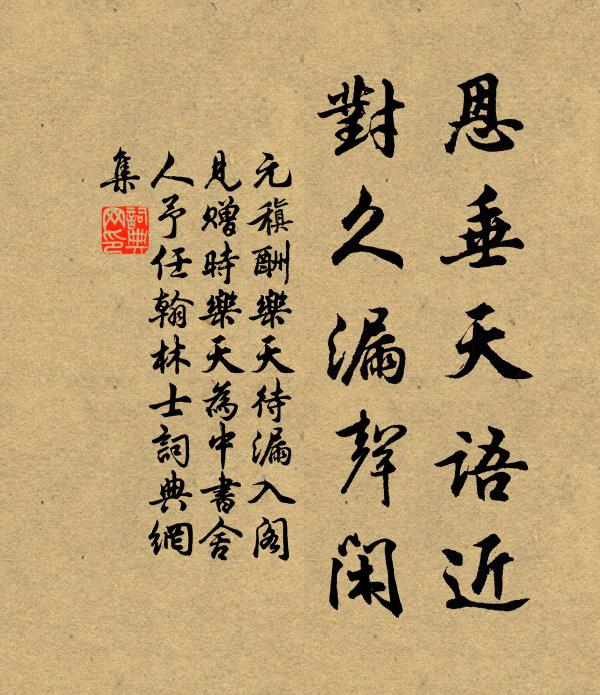 恩垂天語近
對久漏聲閑
元稹酬樂天待漏入閣
見贈時樂天為中書舍
人予任翰林士詞典網
集
詞典網印